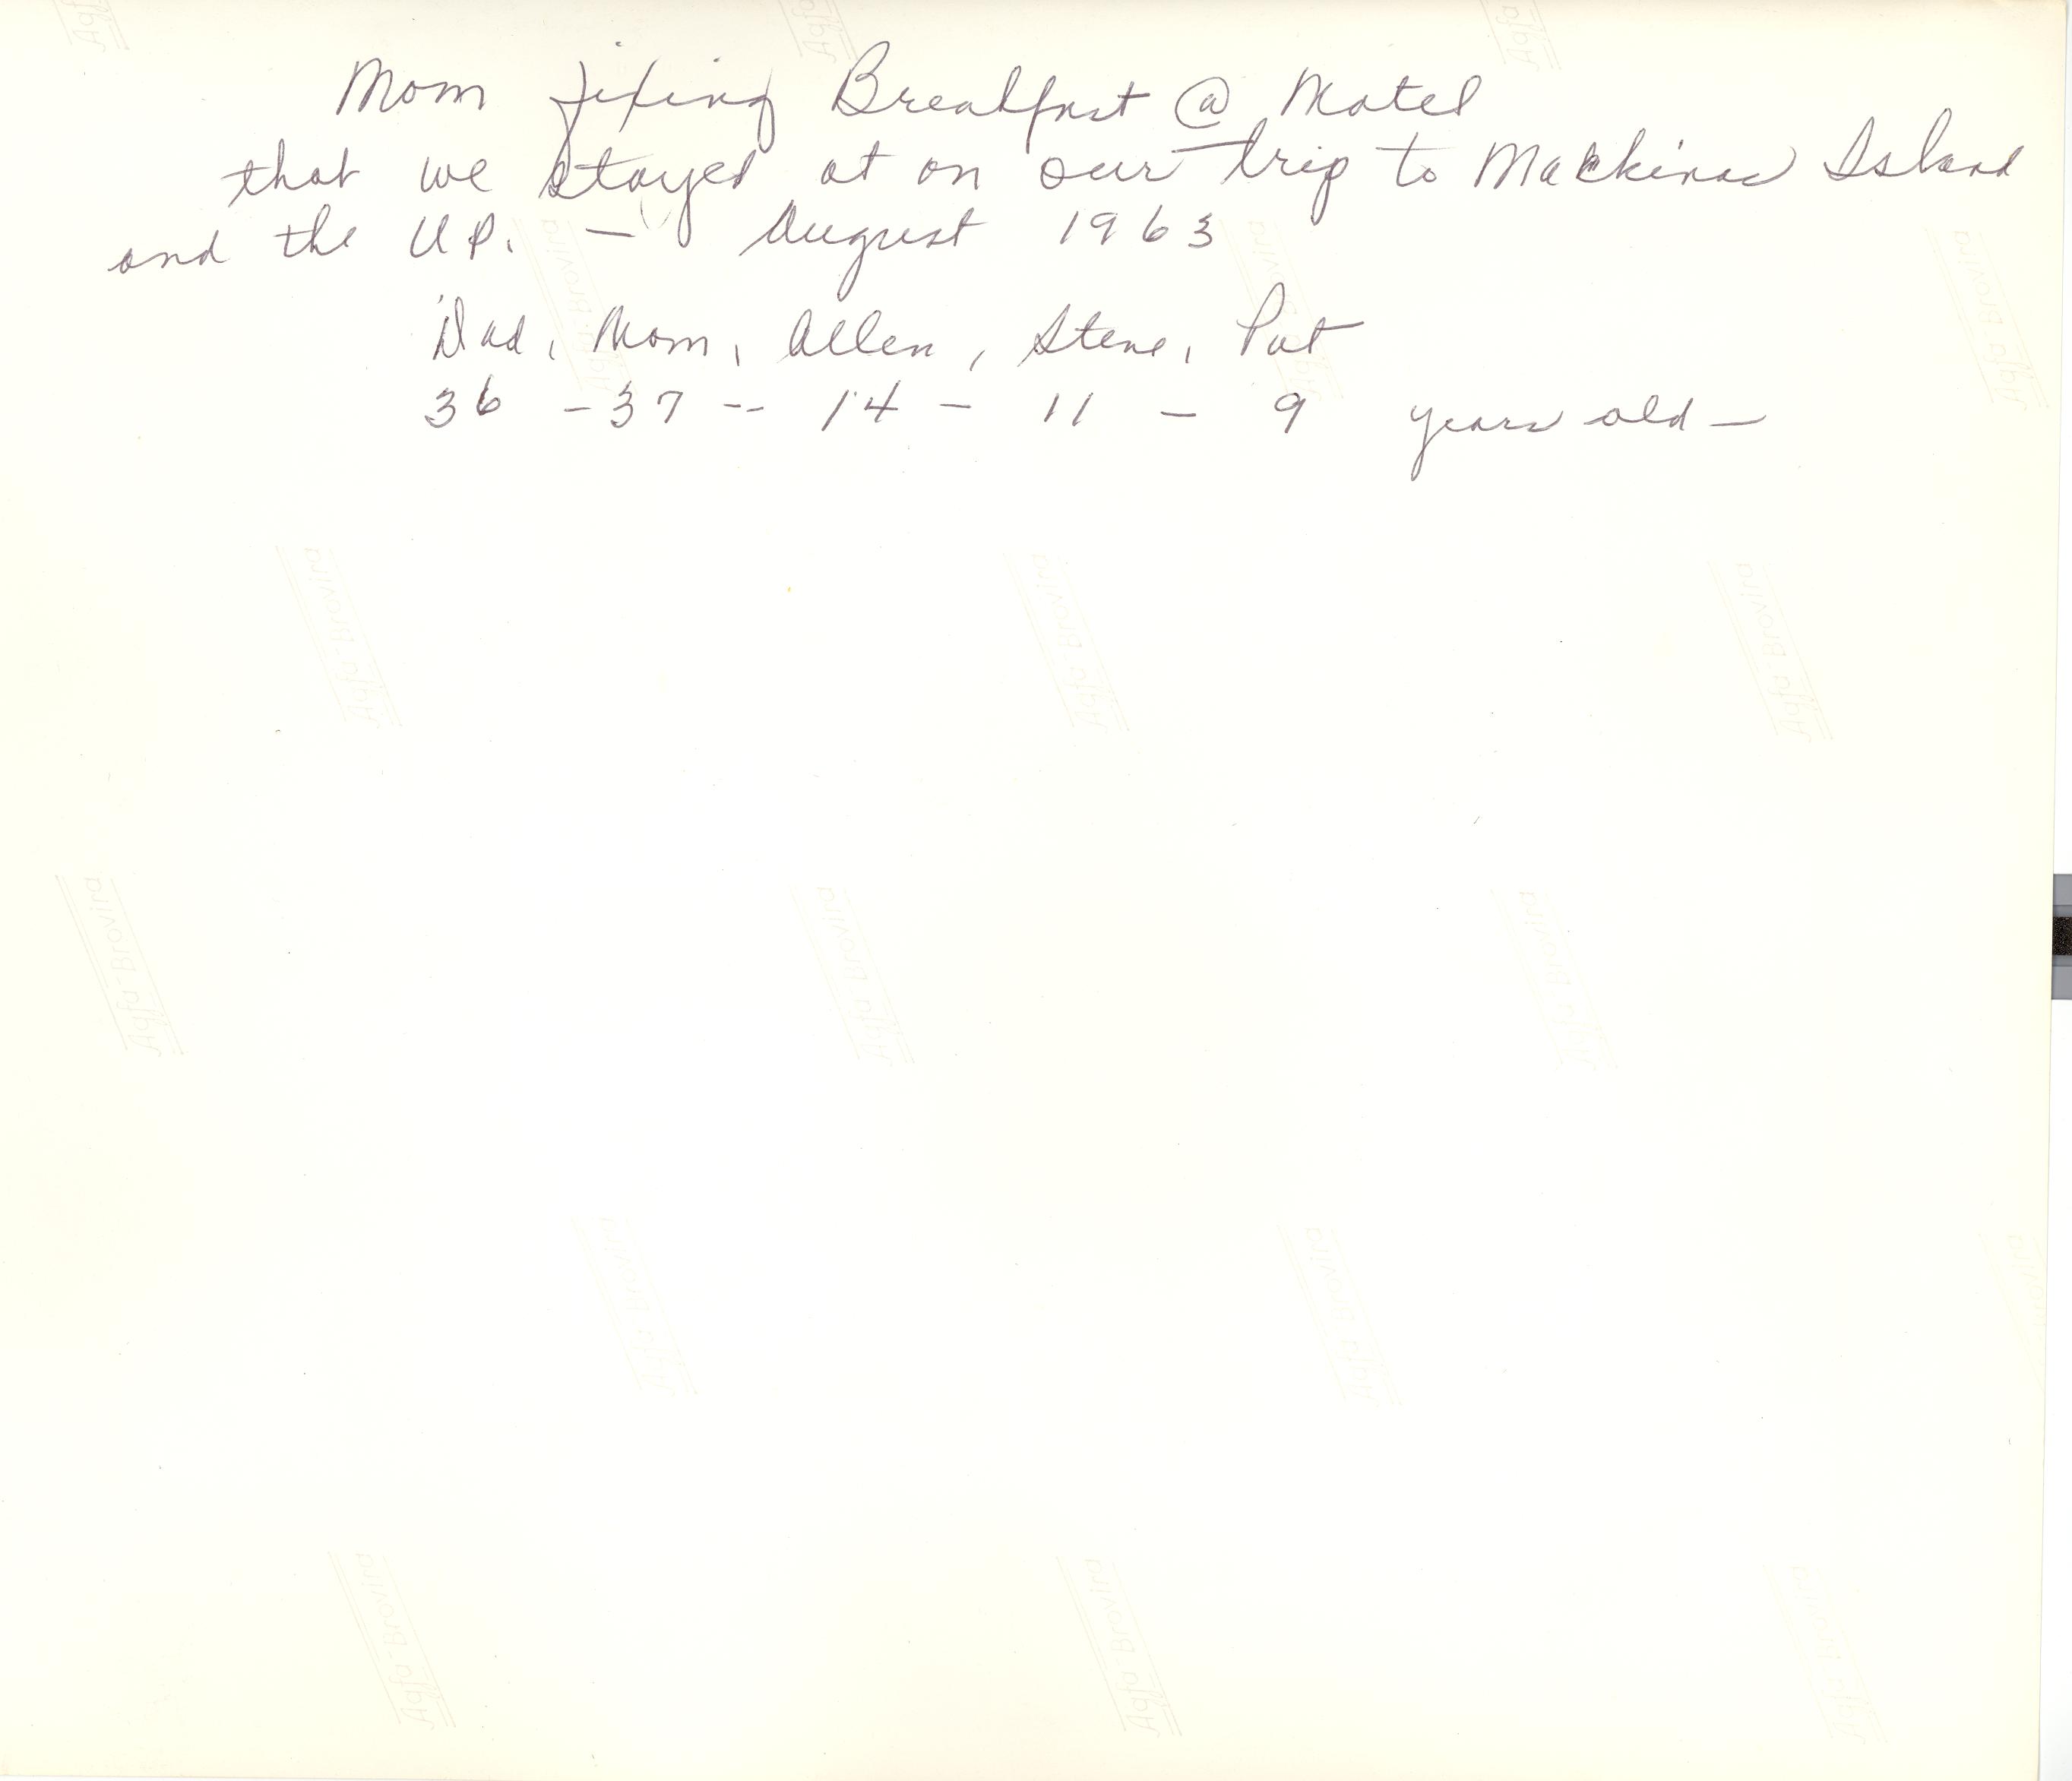 Mom fixing Breakfast @ Motel
that we stayed at on our trip to Mackinac Island
and the U.P. – August 1963
Dad, Mom, Allen, Steve, Pat
36 – 37 -- 14 – 11 – 9 years old –
Agfa-Brovira